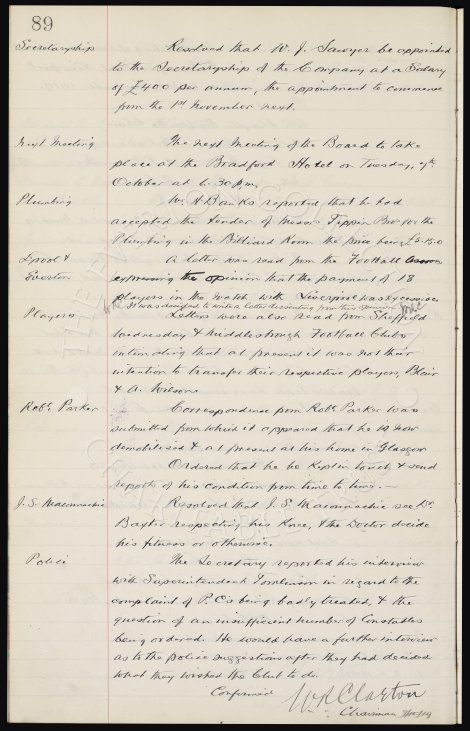 89
Secretaryship Resolved that W. J. Sawyer be appointed
to the Secretaryship of the Company at a Salary
of £400 per annum, the appointment to commence
from the 1st November next.
Next Meeting The next Meeting of the Board to take
place at the Bradford Hotel on Tuesday, 7th
October at 6.30 p.m.
Plumbing Mr. H Banks reported that he had
accepted the tender of Messrs Tippin Bro for the
Plumbing in the Billiard Room the price being
L'pool & A letter was read from the Football
Everton expressing the opinion that the payment of 18
players in the match with Liverpool was excessive
It was decided to write a letter dissenting from this
Players Letters were also read from Sheffield
Wednesday & Middlesbrough Football Clubs
intimating that at present it was not their
intention to transfer their respective players, Blair
& A. Wilson.
Robt. Parker Correspondence from Robt. Parker was
submitted from which it appeared that he is now
demobilised & at present at his home in Glasgow
Ordered that he be kept in touch, & send
reports of his condition from time to time.
J. S. Maconnachie Resolved that J. S. Maconnachie see Dr.
Baxter respecting his Knee, & the Doctor decide
his fitness or otherwise.
Police The Secretary reported his interview
with Superintendent Tomlinson in regard to the
complaint of P. C's being badly treated, & the
question of an insufficient number of Constables
being ordered. He would have a further interview
as to the police suggestions after they had decided
what they wished the Club to do.
Confirmed W R Clayton
Chairman